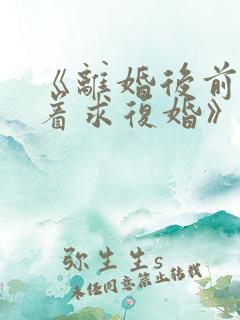 《離婚後前
着求復婚》
弥生生s
未经同意禁止转载